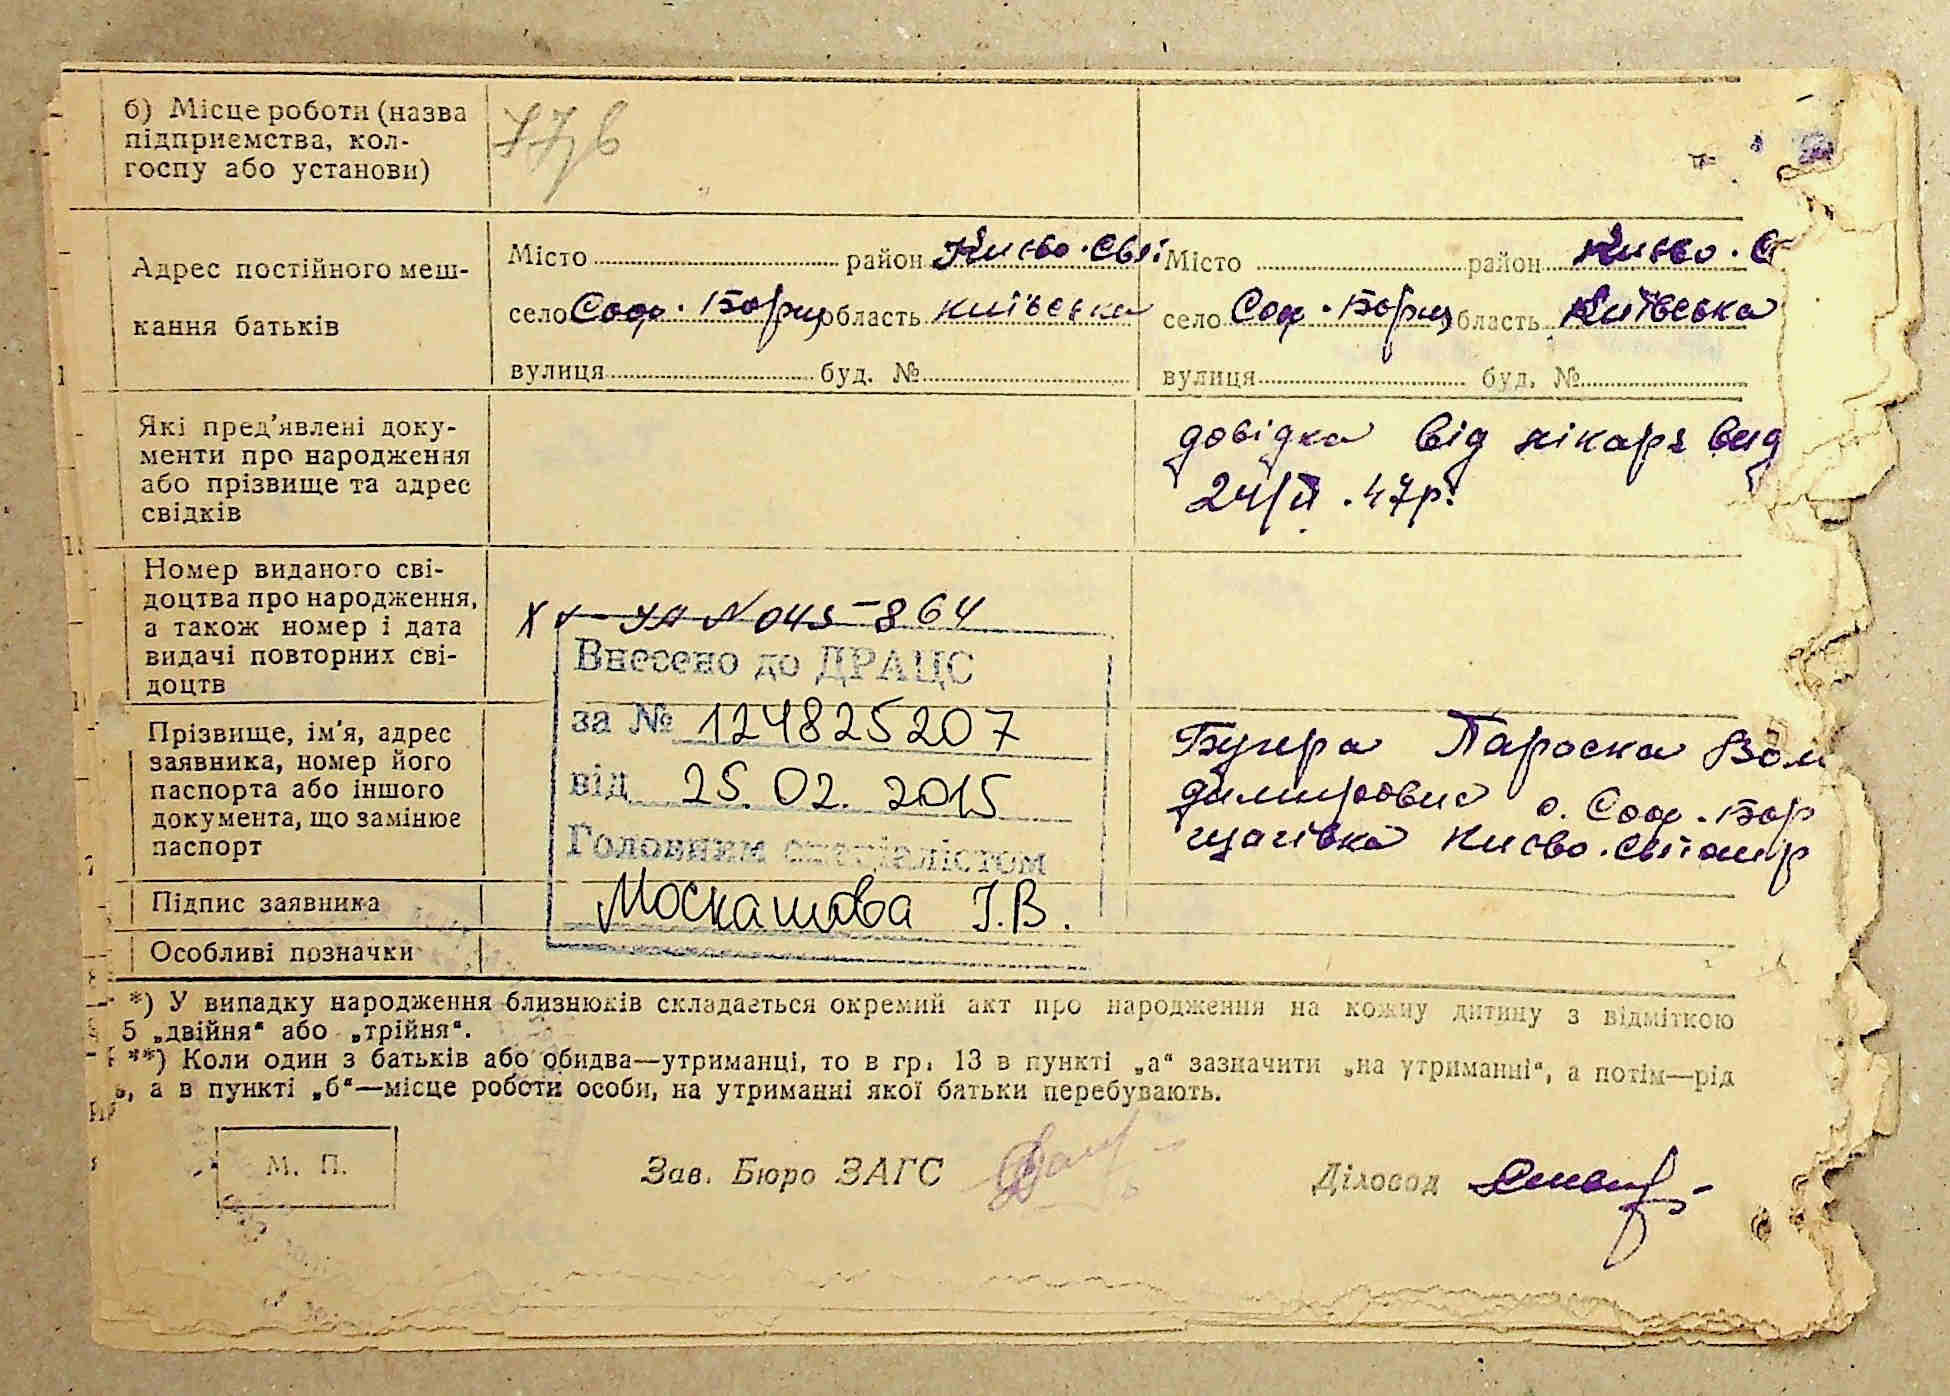 б) Місце роботи (назва
підприємства, кол-
госпу або установи)
Адрес постійного меш-
кання батьків
Місто район Києво-Свя
село Соф. Борщ область київська
вулиця буд. №
Місто район Києво-С
село Соф. Борщ область Київська
вулиця буд. №
Які пред'явлені доку-
менти про народження
або прізвище та адрес
свідків
довідка від лікаря вид
24/ІІ .47р.
Номер виданого сві-
доцтва про народження,
а також номер і дата
видачі повторних сві-
доцтв
№ 045-864
Внесено до ДРАЦС
за № 124825207
від 25.02.2015
Головним спеціалістом
Москашова І.В.
Прізвище, ім'я, адрес
заявника, номер його
паспорта або іншого
документа, що замінює
паспорт
Пароска Воло
с. Соф. Бор
щагівка Києво.Святошр
Підпис заявника
Особливі позначки
*) У випадку народження близнюків складається окремий акт про народження на кожну дитину з відміткою
5 „двійня“ або „трійня“.
**) Коли один з батьків або обидва—утриманці, то в гр. 13 в пункті „а“ зазначити „на утриманні“, а потім—рід
, а в пункті „б“—місце роботи особи, на утриманні якої батьки перебувають.
М. П.
Зав. Бюро ЗАГС
Діловод